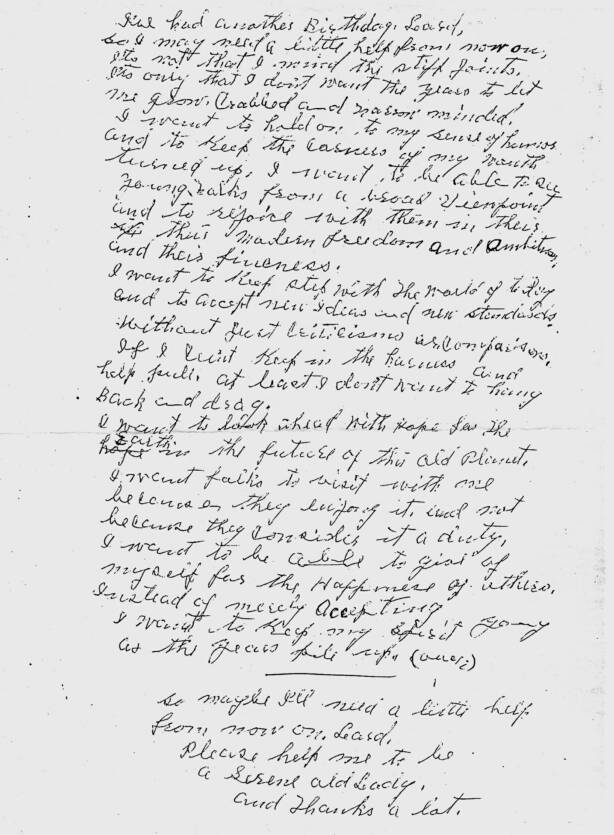 I've had another Birthday, Lord,
so I may need a little help from now on,
Its not that I mind the stiff Joints,
Its only that I don't want the years to let
me grow Crabbed and narrow minded.
I want to hold on to my sense of humor
and to keep the Corners of my mouth
turned up, I want to be able to see
Young folks from a broad Viewpoint
and to rejoice with them in their
their Modern freedom and Ambition,
and their fineness.
I want to keep step with the World of to Day
and to accept new Ideas and new standards
Without Just Criticisms or Comparisons.
If I Can't Keep in the harness and
help pull, at least I don't want to hang
Back and drag.
I want to look ahead with Hope for the
Earth in the future of this old Planet.
I want folks to visit with me
because they enjoy it, and not
because they Consider it a duty,
I want to be able to give of
myself for the Happiness of others.
Instead of merely Accepting
I want to keep my spirit young
as the years pile up. (over)
so maybe I'll need a little help
from now on, Lord.
Please help me to be
a Serene old Lady,
and Thanks a lot.